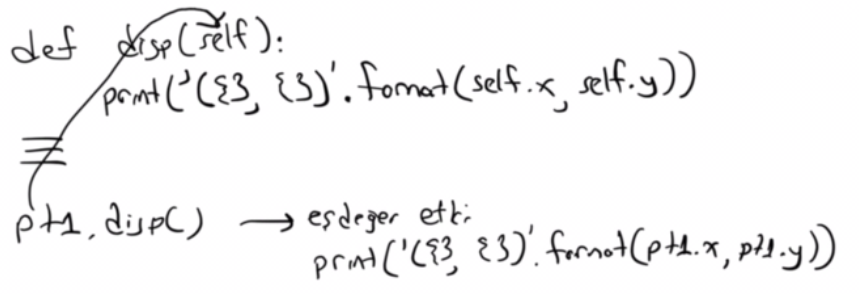 def disp(self):
print('({}, {})'.format(self.x, self.y))
pt1.disp() → eşdeğer etki
print('({}, {})'.format(pt1.x, pt1.y))